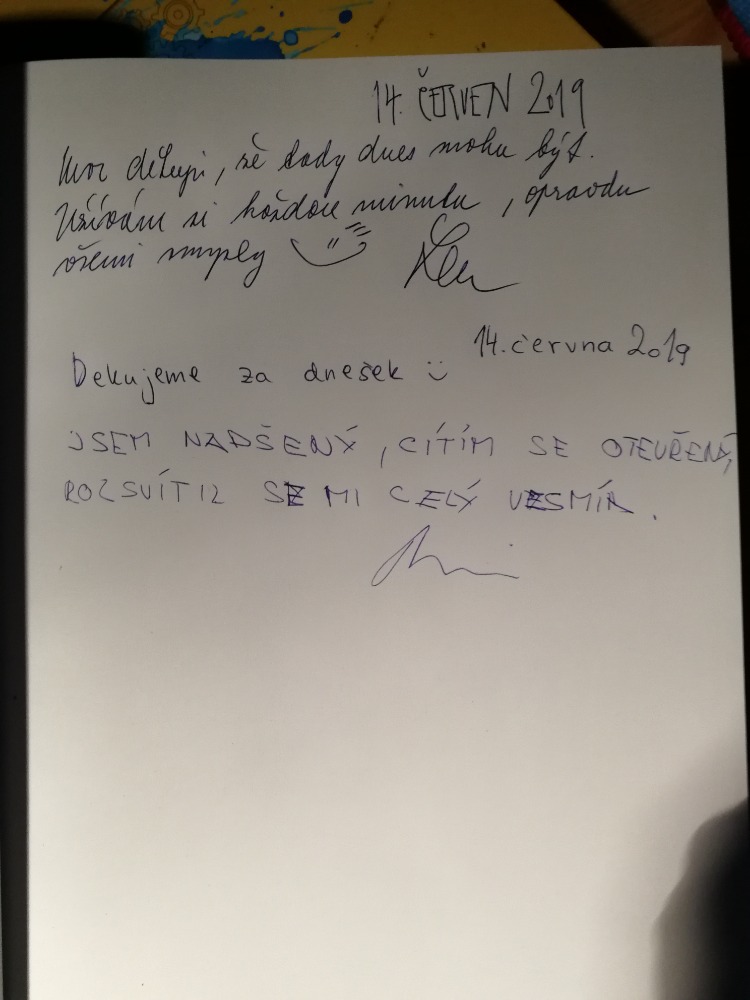 14. ČERVEN 2019
Moc děkuji, že tady dnes mohu být.
Užívám si každou minutu, opravdu
všemi smysly
14. června 2019
Dekujeme za dnešek
JSEM NADŠENÝ, CÍTÍM SE OTEVŘENÝ,
ROZSVÍTIL SE MI CELÝ VESMÍR.